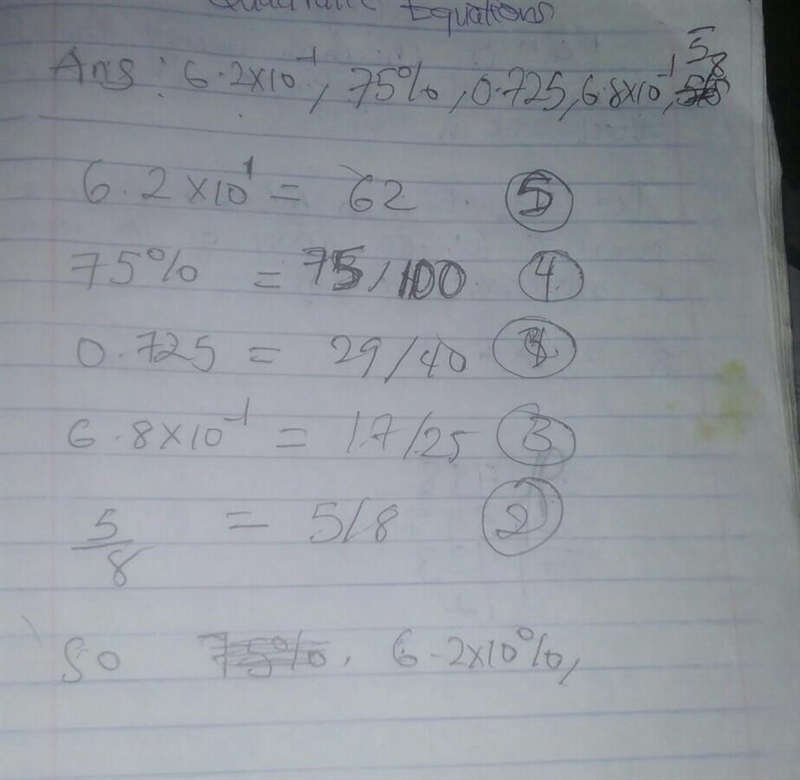 Quadratic Equations
Ans: 6.2x10⁻¹, 75%, 0.725, 6.8x10⁻¹, 5/8
6.2x10¹ = 62 ⑤
75% = 75/100 ④
0.725 = 29/40
6.8x10⁻¹ = 17/25 ③
5/8 = 5/8 ②
So 75%, 6.2x10%,